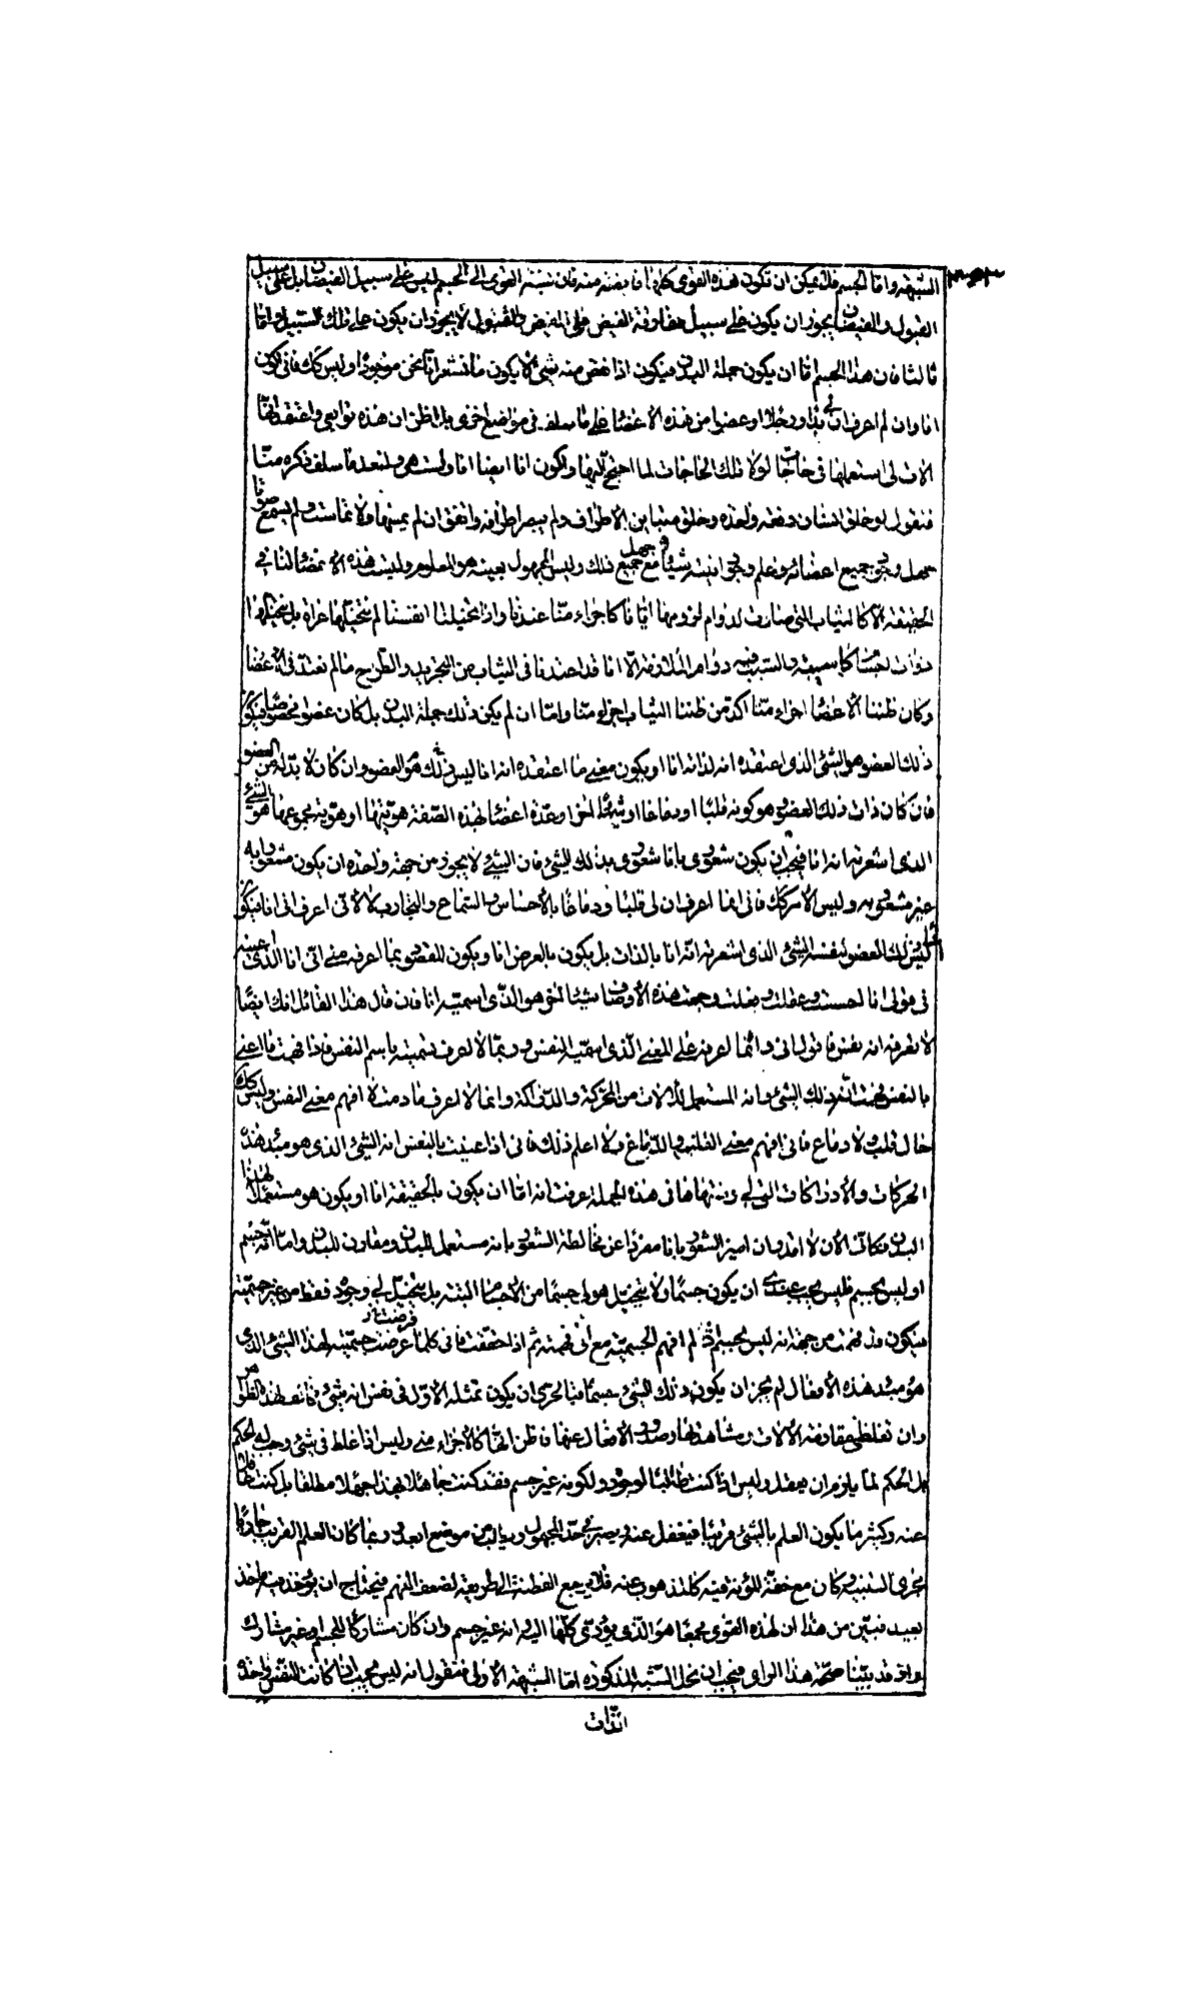 الشبهة واما الجسم فلا يمكن ان تكون هذه القوى كلها فايضة منه فان نسبة القوى الى الجسم ليس على سبيل الفيضان بل على سبيل
القبول والفيضان يجوز ان يكون على سبيل مفارقة الفيض على المفيض والقبول لا يجوز ان يكون على تلك السبيل واما
ثالثا فان هذا الجسم اما ان يكون جملة البدن فيكون اذا نقص منه شئ لا يكون ما نشعر انا نحن موجودا وليس كك فانى اكون
انا وان لم اعرف ان لى يدا ورجلا او عضوا من هذه الاعضاء على ما سلف فى مواضع اخرى بل اظن ان هذه توابعى واعتقد انها
الات لى استعملها فى حاجات لولا تلك الحاجات لما احتيج اليها واكون انا ايضا انا ولست هى ولنعد ما سلف ذكره منا
فنقول لو خلق انسان دفعة واحدة وخلق متباين الاطراف ولم يبصر اطرافه واتفق ان لم يمسها ولا تماست ولم يسمع صوتا
جهل وجود جميع اعضائه وعلم وجود انيته شيئا مع جهل جميع ذلك وليس المجهول بعينه هو المعلوم وليست هذه الاعضاء لنا فى
الحقيقة الا كالثياب التى صارت لدوام لزومها ايانا كاجزاء منا عندنا واذا تخيلنا انفسنا لم نتخيلها عراة بل نتخيلها
ذوات اجسام كاسية والسبب فيه دوام الملازمة الا انا قد اعتدنا فى الثياب من التجريد والطرح ما لم نعتد فى الاعضاء
وكان ظننا الاعضاء اجزاء منا اكد من ظننا الثياب اجزاء منا واما ان لم يكن ذلك جملة البدن بل كان عضوا مخصوصا فيكون
ذلك العضو هو الشئ الذى اعتقده انه لذاته انا او يكون معنى ما اعتقده انه انا ليس ذلك هو العضو وان كان لا بد له من العضو
فان كان ذات ذلك العضو وهو كونه قلبا او دماغا او شيئا اخر او عدة اعضاء بهذه الصفة هويتها او هوية مجموعها هو الشئ
الذى اشعر به انه انا فيجب ان يكون شعورى بانا شعورى بذلك الشئ فان الشئ لا يجوز من جهة واحدة ان يكون مشعورا به
غير مشعور به وليس الامر كك فانى انما اعرف ان لى قلبا ودماغا بالاحساس والسماع والتجارب لا لانى اعرف انى انا فيكون
اذن ليس ذلك العضو لنفسه الشئ الذى اشعر به انه انا بالذات بل يكون بالعرض انا ويكون المقصود بما اعرفه منى انى انا الذى اعنيه
فى قولى انا احسست وعقلت وفعلت وجمعت هذه الاوصاف شيئا اخر هو الذى اسميه انا فان قال هذا القائل انك ايضا
لا تعرف انه نفس فاقول انى دائما اعرفه على المعنى الذى اسميه النفس وربما لا اعرف تسميته باسم النفس فاذا فهمت ما اعنى
بالنفس فهمت انه ذلك الشئ وانه المستعمل للالات من المحركة والدراكة وانما لا اعرف ما دمت لا افهم معنى النفس وليس كك
حال قلب ولا دماغ فانى افهم معنى القلب والدماغ ولا اعلم ذلك فانى اذا عنيت بالنفس انه الشئ الذى هو مبدء هذه
الحركات والادراكات التى لى ومنتهاها فى هذه الجملة عرفت انه اما ان يكون بالحقيقة انا او يكون هو مستعملا لهذا
البدن فكانى الان لا اقدر ان اميز الشعور بانا مفردا عن مخالطة الشعور بانه مستعمل للبدن ومقارن للبدن واما انه جسم
او ليس بجسم فليس يجب عندى ان يكون جسما ولا يتخيل هو لى جسما من الاجسام البتة بل يتخيل لى وجود فقط من غير جسمية
فيكون قد فهمت من جهة انه ليس بجسم اذ لم افهم الجسمية مع انى فهمته ثم اذا حققت فانى كلما عرضت جسمية لهذا الشئ الذى
فرضت
هو مبدء هذه الافعال لم يجز ان يكون ذلك الشئ جسما فبالحرى ان يكون تمثله الاول فى نفسى انه شئ مخالف لهذه الظواهر
وان تغلطنى مقارنة الالات ومشاهدتها وصدور الافعال عنها فاظن انها كالاجزاء منى وليس اذا غلط فى شئ وجب له حكم
بل الحكم لما يلزم ان يعقل وليس اذا كنت طالبا لوجوده ولكونه غير جسم فقد كنت جاهلا بهذا جهلا مطلقا بل كنت غافلا
عنه وكثيرا ما يكون العلم بالشئ قريبا فيغفل عنه ويصير فى حد المجهول ويطلب من موضع ابعد وربما كان العلم القريب جاريا
مجرى التنبيه وكان مع خفة المؤنة فيه كالمذهوب عنه فلا يرجع الفطنة الى طريقه لضعف الفهم فيحتاج ان يؤخذ فيه ماخذ
بعيد فبين من هذا ان لهذه القوى مجمعا هو الذى يؤدى كلها اليه وانه غير جسم وان كان مشاركا للجسم او غير مشارك
واذ قد بينا صحة هذا الراى فيجب ان نحل الشبه المذكورة اما الشبهة الاولى فنقول انه ليس يجب اذا كانت النفس واحدة
الذات